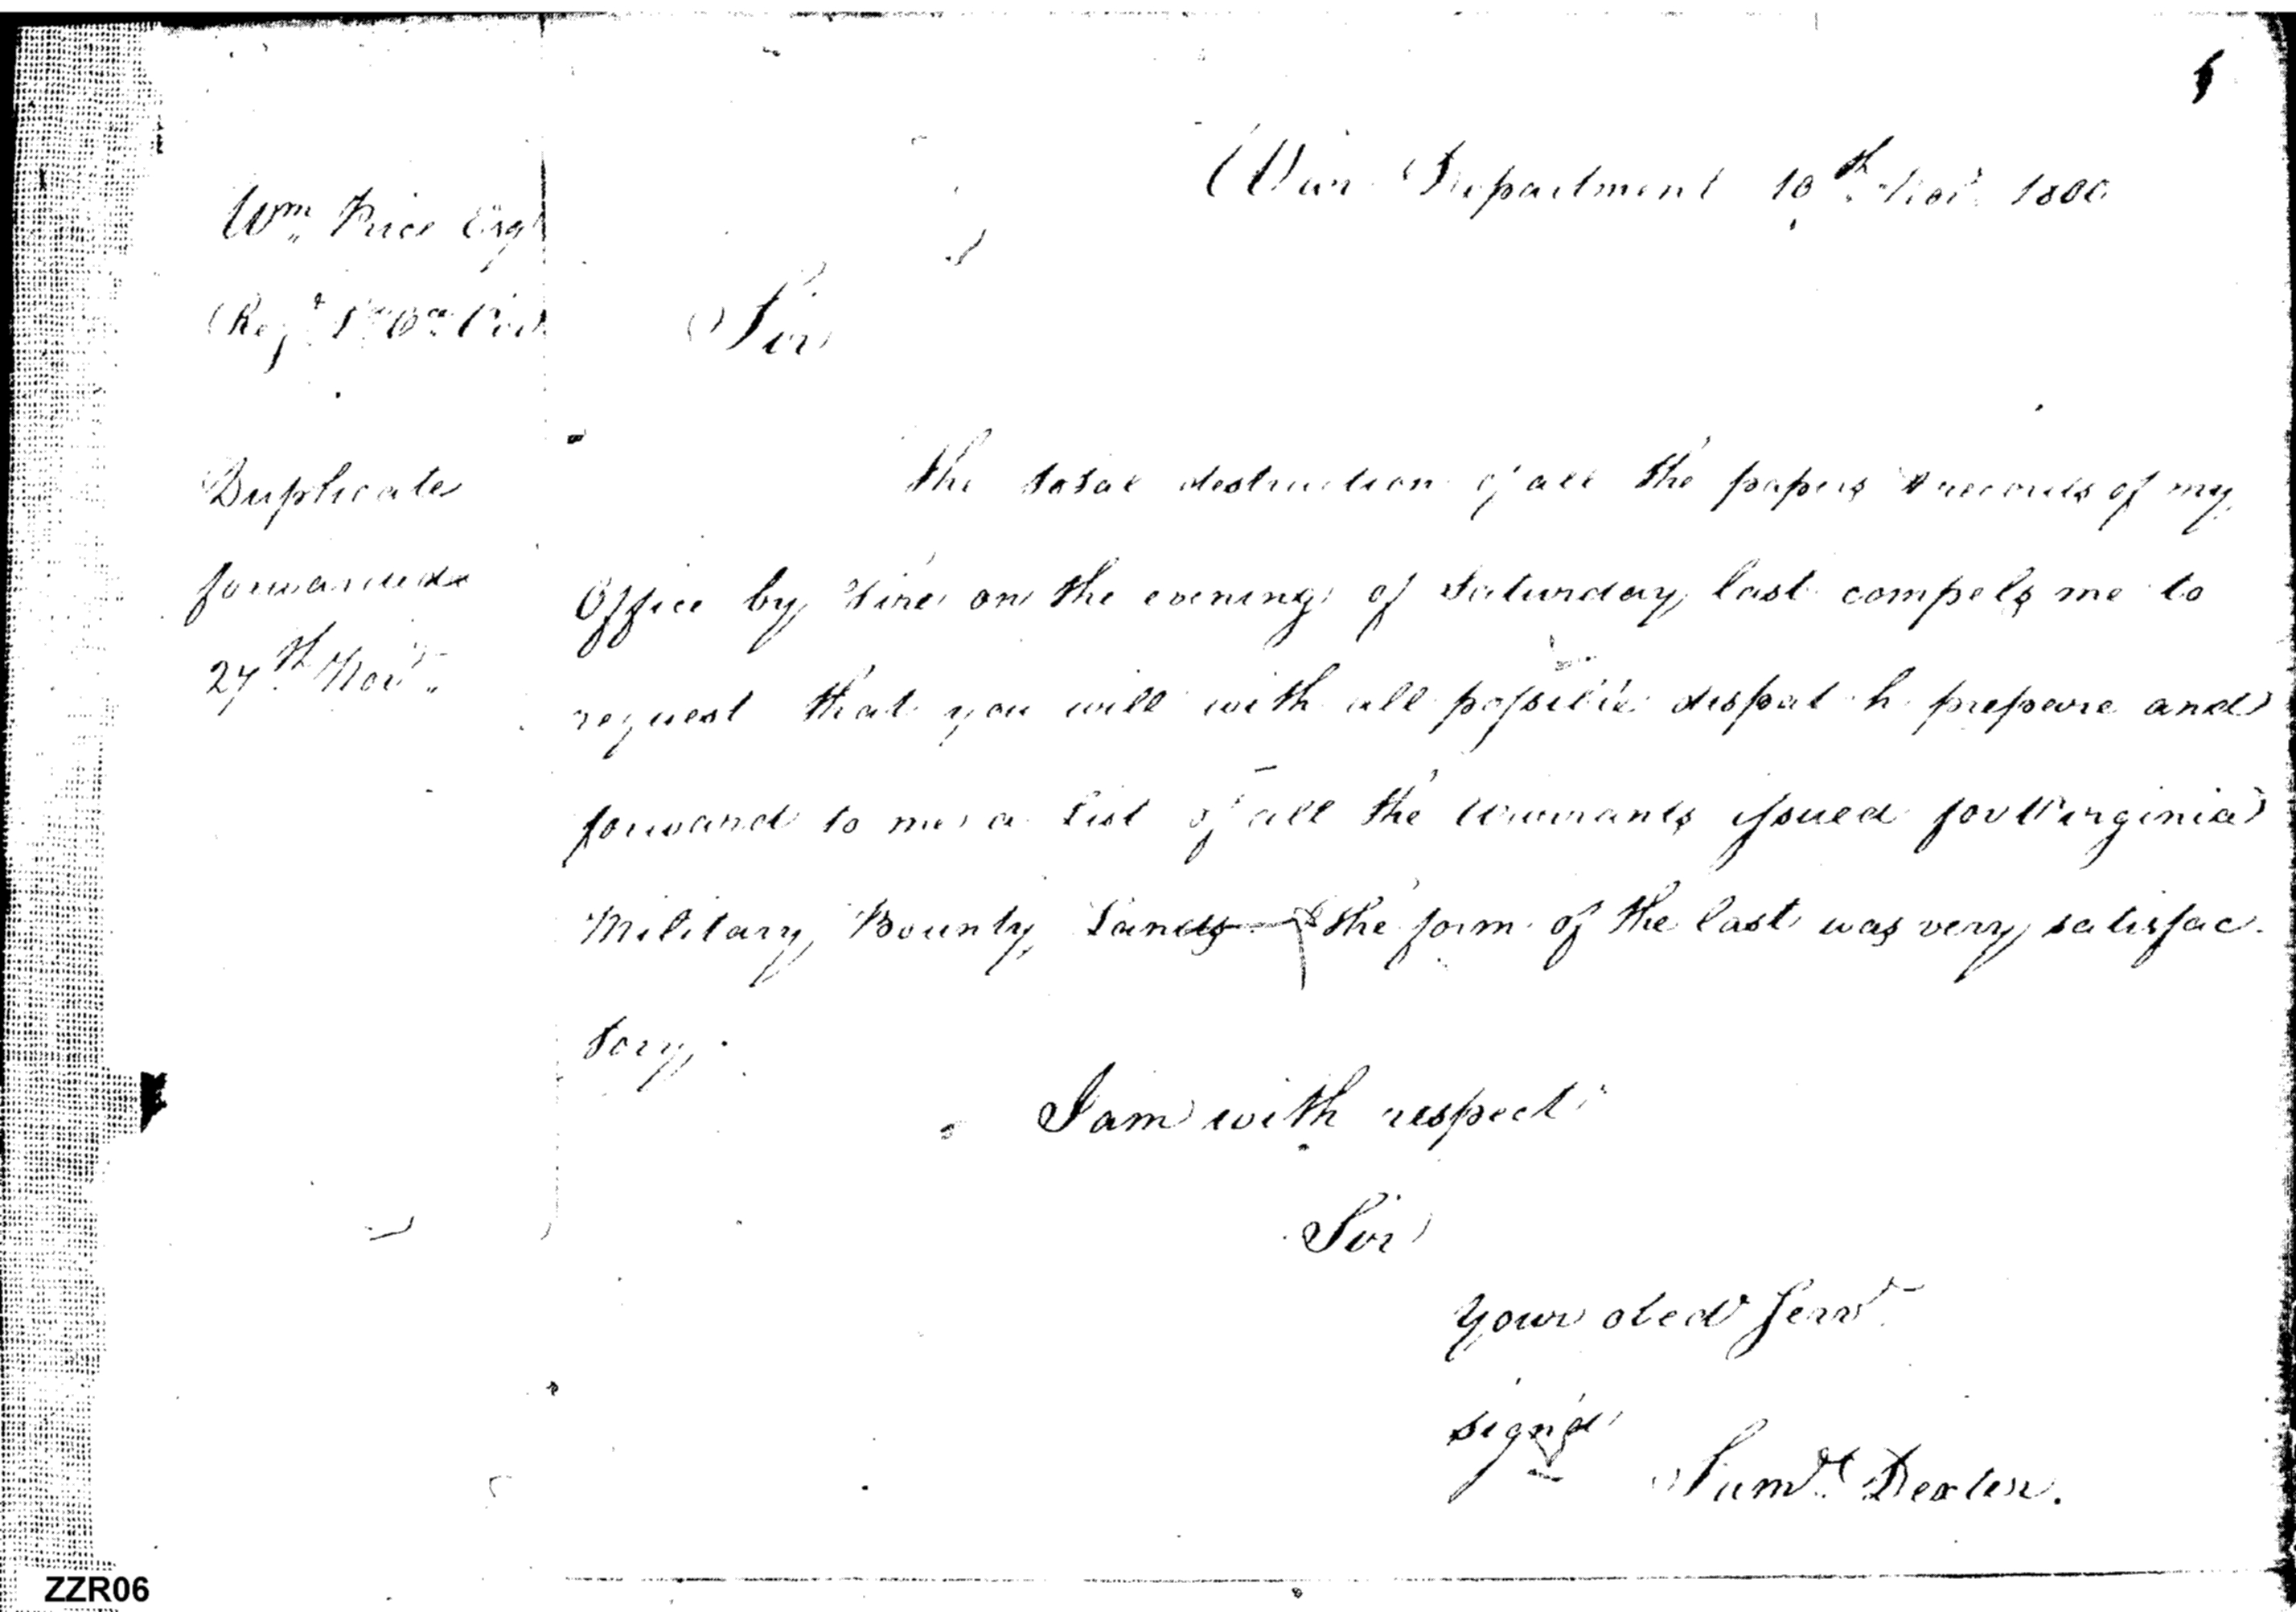 1
War Department 10th Novr 1800
Wm Price Esqr
Regr
Sir
Duplicate
forwarded
27th Novr
The total destruction of all the papers & records of my
Office by Fire on the evening of Saturday last compels me to
request that you will with all possible dispatch prepare and
forward to me a List of all the Warrants issued for Virginia
Military Bounty Lands the form of the last was very satisfac
tory.
I am with respect
Sir
Your obedt Servt
signd
Saml Dexter.
ZZR06